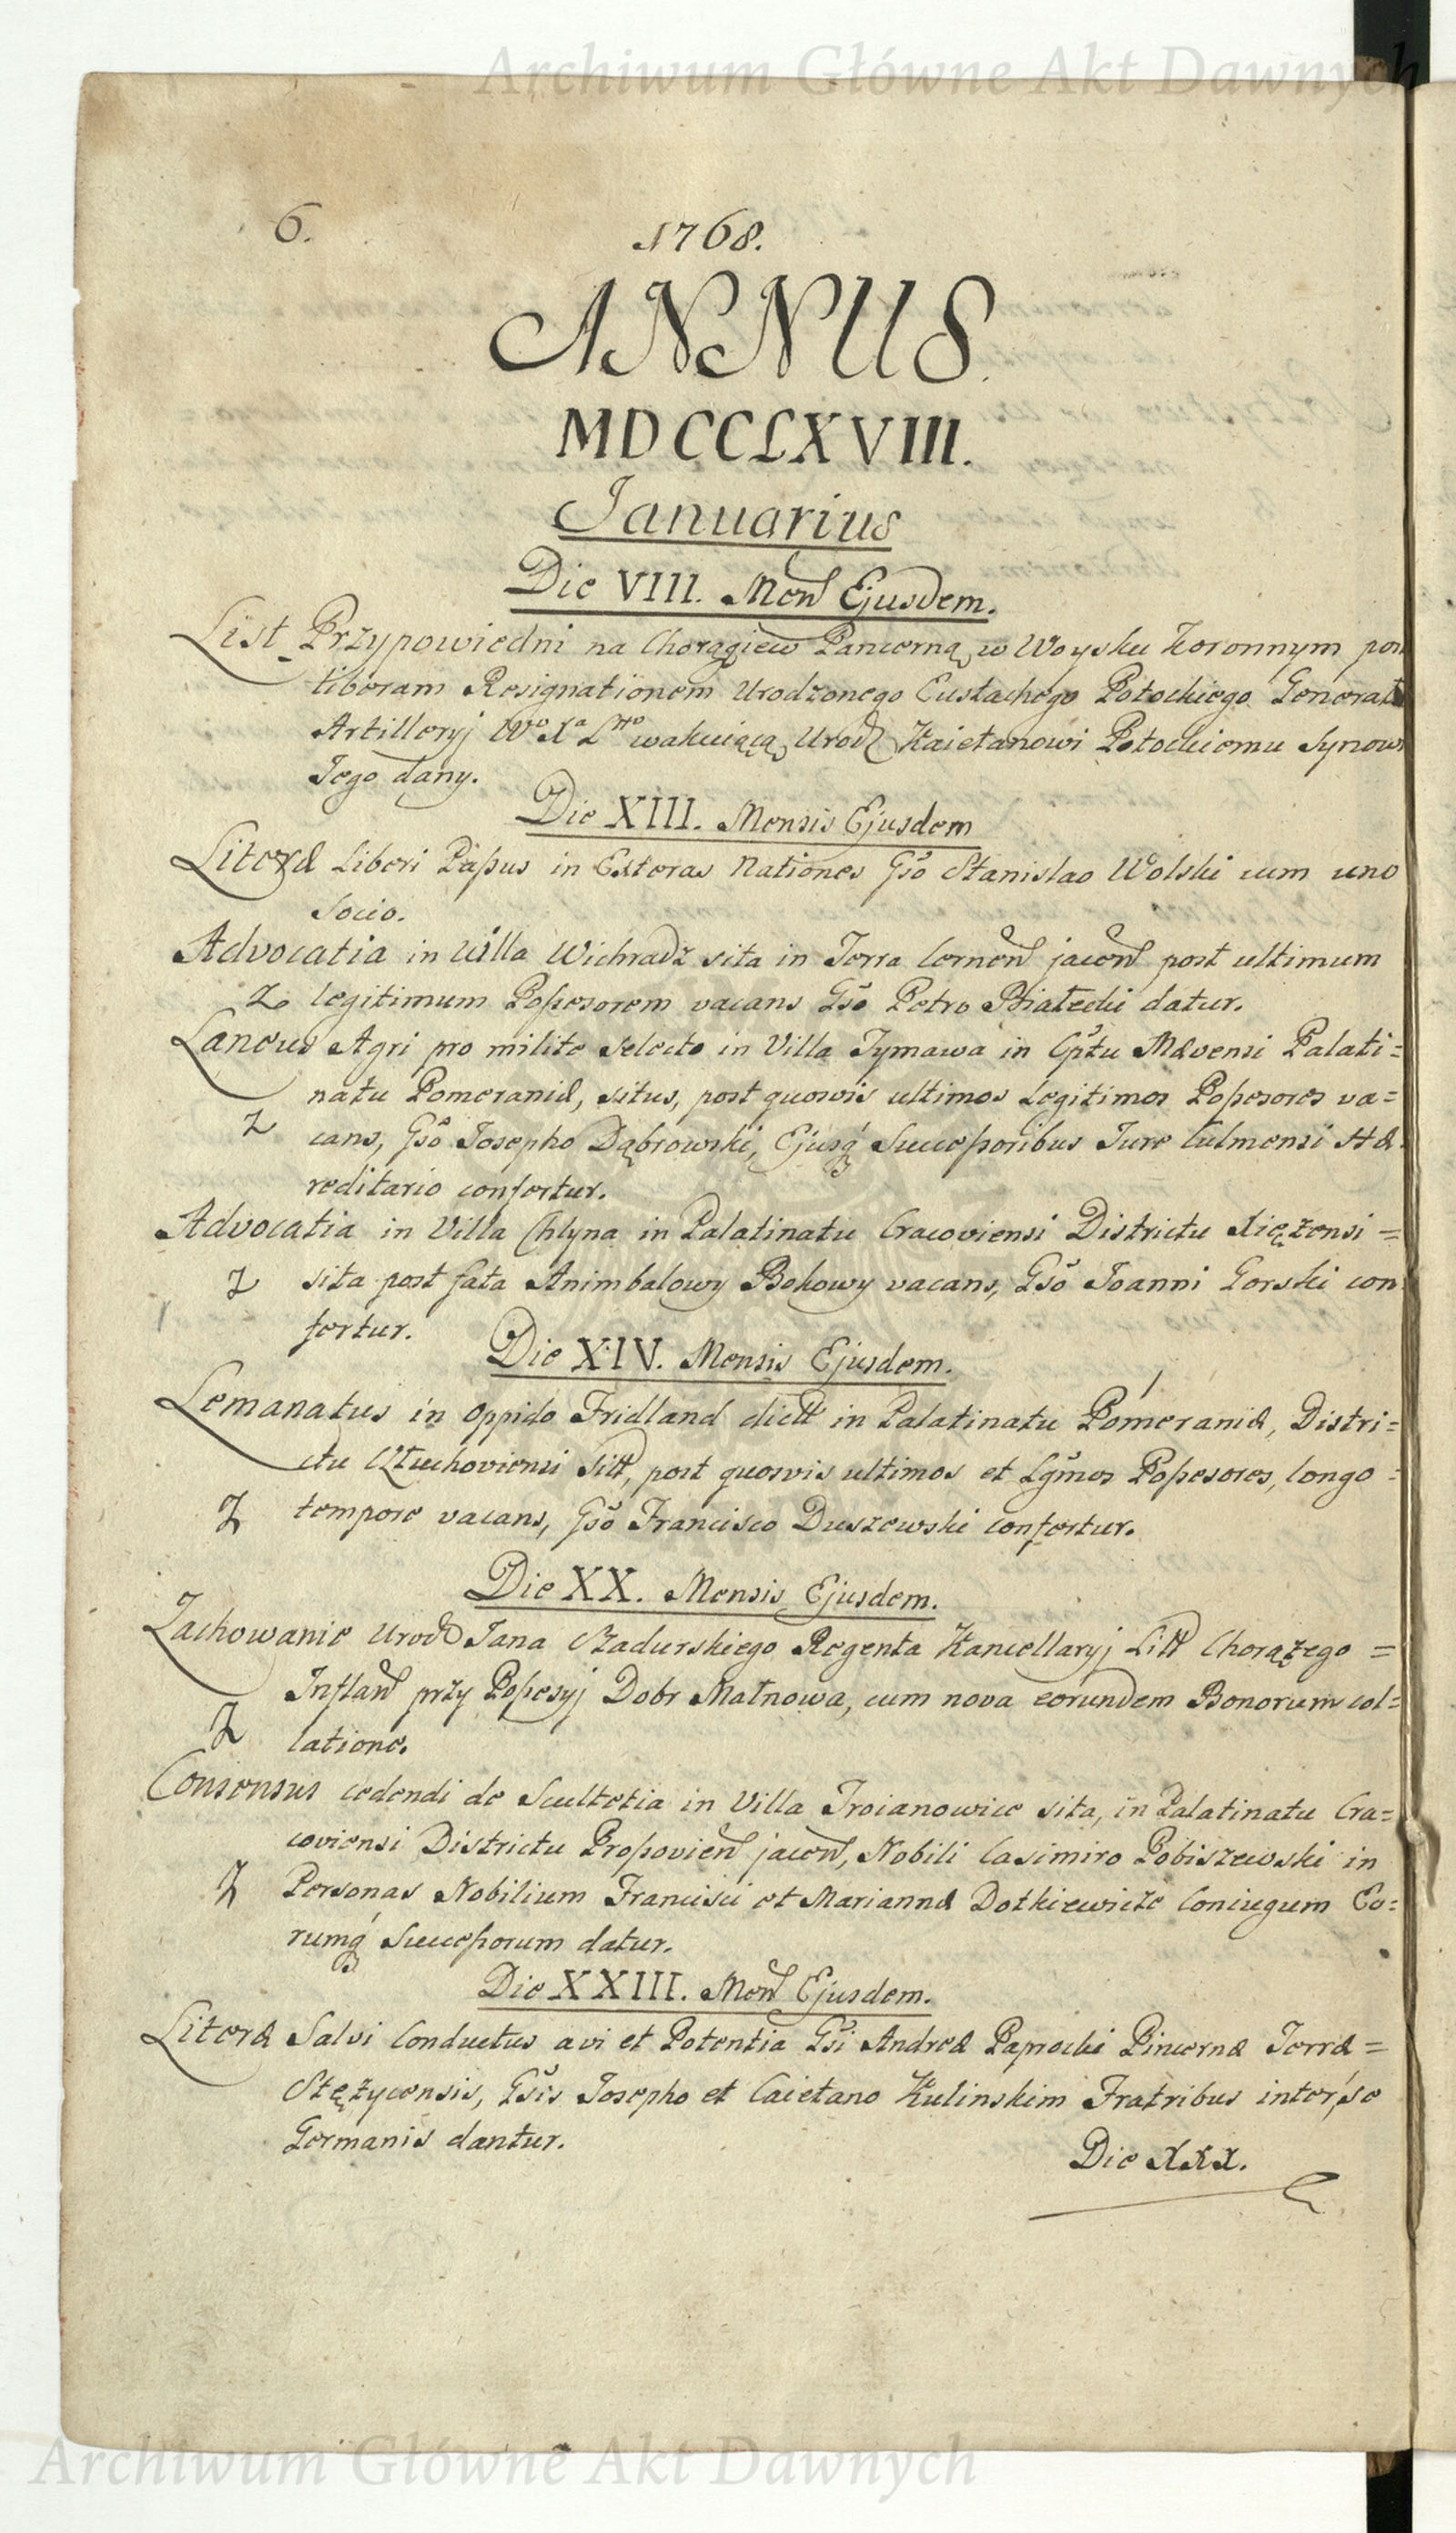 Archiwum Główne Akt Dawnych
6. 1768.
ANNUS.
MDCCLXVIII.
Januarius
Die VIII. Mens Ejusdem.
List Przypowiedni na Chorągiew Pancerną w Woysku Koronnym per
liberam Resignationem Urodzonego Eustachego Potockiego Generała
Artilleryj Wo Xa Lttgo wakuiącą Urodz Kaietanowi Potockiemu Synowi
Jego dany.
Die XIII. Mensis Ejusdem
Literæ Liberi Passus in Exteras Nationes Gso Stanislao Wolski cum uno
Socio.
Advocatia in Villa Wichradz sita in Terra Cernen jacen post ultimum
Z legitimum Possesorem vacans Gso Petro Białecki datur.
Laneus Agri pro milite selecto in Villa Tymawa in Cpttu Mævensi Palati=
natu Pomeraniæ, situs, post quosvis ultimos Legitimos Possesores va=
Z cans, Gso Josepho Dąbrowski, Ejusq Successoribus Jure Culmensi Hæ
reditario confertur.
Advocatia in Villa Chlyna in Palatinatu Cracoviensi Districtu Xiężensi =
Z sita post fata Animbalowy Bekowy vacans, Gso Joanni Gorski con
fertur.
Die XIV. Mensis Ejusdem.
Lemanatus in Oppido Fridland dictt in Palatinatu Pomeraniæ, Distri=
ctu Człuchoviensi Sitt, post quosvis ultimos et Lgmos Possesores, longo =
Z tempore vacans, Gso Francisco Duszewski confertur.
Die XX. Mensis Ejusdem.
Zachowanie Urodz Jana Szadurskiego Regenta Kancellaryj Litt Chorążego =
Inflan przy Possesyj Dobr Małnowa, cum nova eorundem Bonorum col=
Z latione.
Consensus cedendi de Scultetia in Villa Troianowice sita, in Palatinatu Cra=
coviensi Districtu Prossovien jacen, Nobili Casimiro Pobiszewski in
Z Personas Nobilium Francisci et Mariannæ Dotkiewicze Coniugum Eo=
rumq Successorum datur.
Die XXIII. Mens Ejusdem.
Literæ Salvi Conductus a vi et Potentia Gsi Andreæ Paprocki Pincernæ Terræ =
Stężycensis, Gsis Josepho et Caietano Kulinskim Fratribus inter se
Germanis dantur.
Die XXX.
Archiwum Główne Akt Dawnych